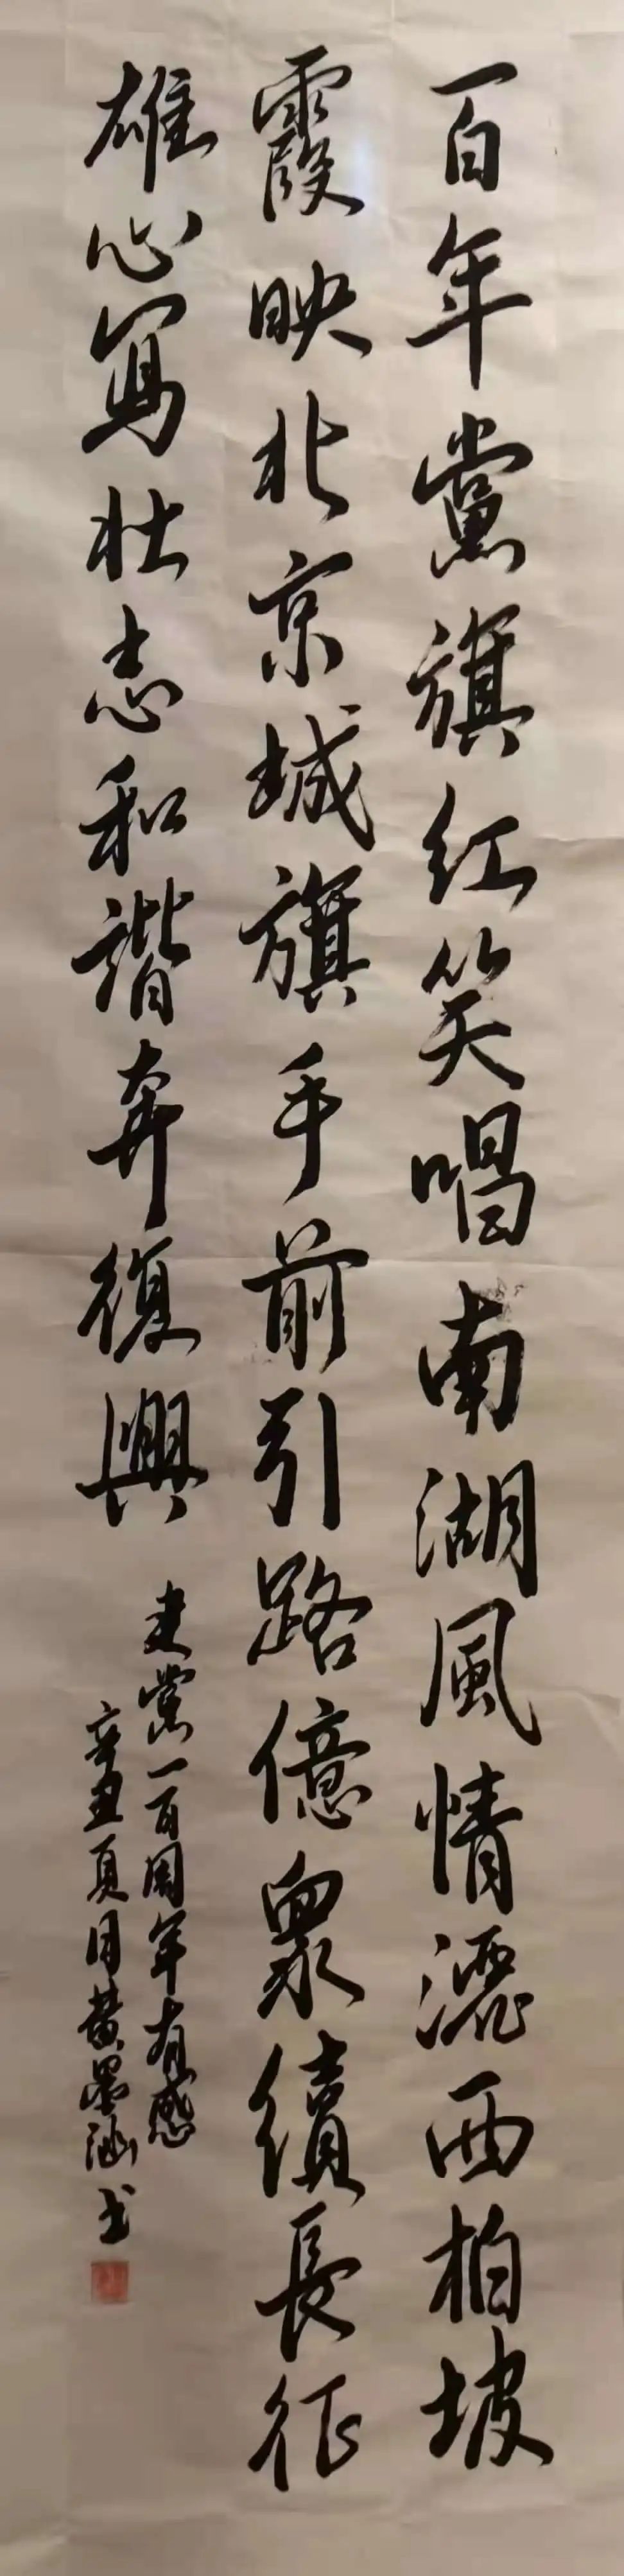 百年黨旗紅笑唱南湖風情灑西柏坡
霞映北京城旗手前引路億衆續長征
雄心寫壯志和諧奔復興
建黨一百周年有感
辛丑夏月黄墨涵书